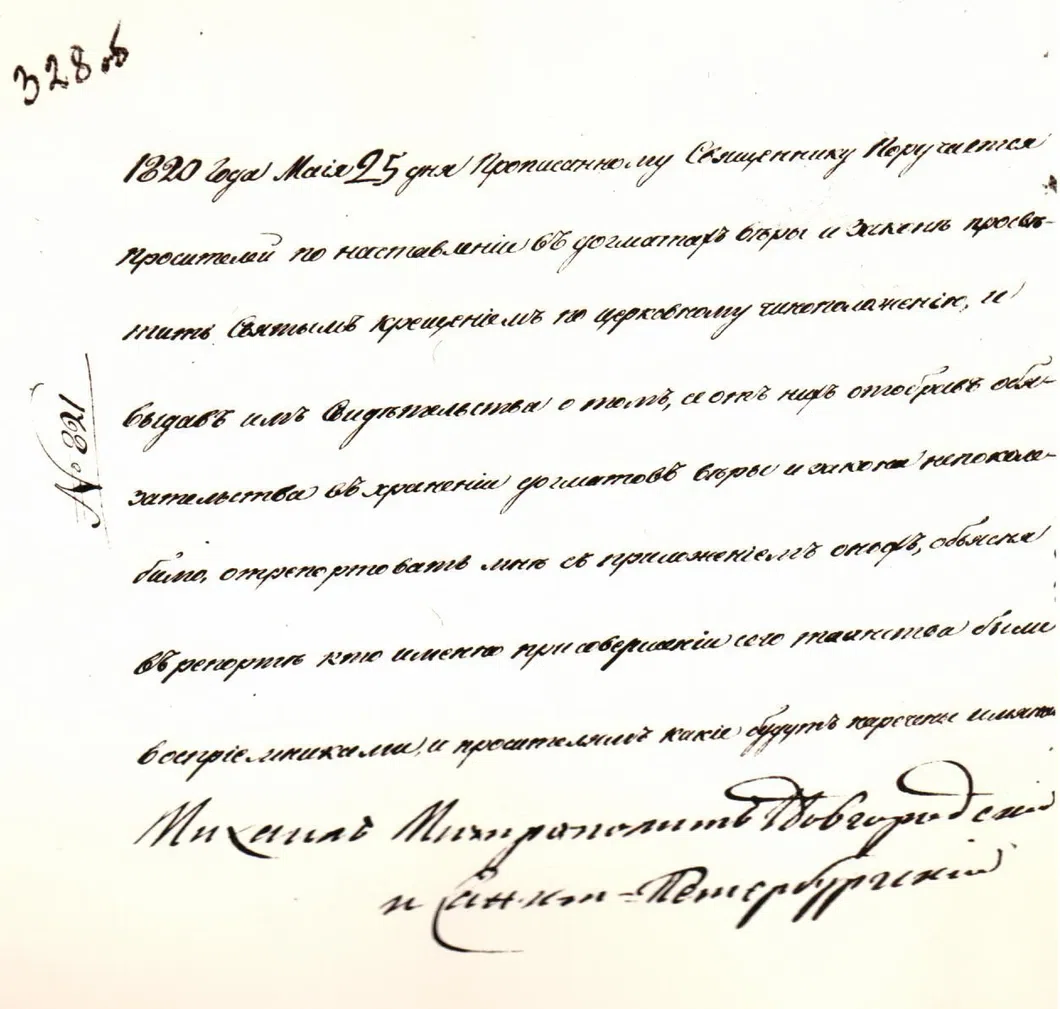 328 об
1820 Года Маія 25 дня Прописанному Священнику Поручается
просителей по наставленіи въ догматахъ вѣры и закона просвѣ-
тить Святымъ крещеніемъ по церковному чиноположенію, и
№ 821
выдавъ имъ Свидѣтельства о томъ, а отъ нихъ отобравъ обя-
зательства въ храненіи догматовъ вѣры и закона непоколе-
бимо, отрепортовать мнѣ съ приложеніемъ оныхъ, объясня
въ репортѣ кто именно при совершеніи сего таинства были
воспріемниками, и просителямъ какіе будутъ наречены имяна
Михаилъ Митрополитъ Новгородскій
и Санкт-Петербургскій